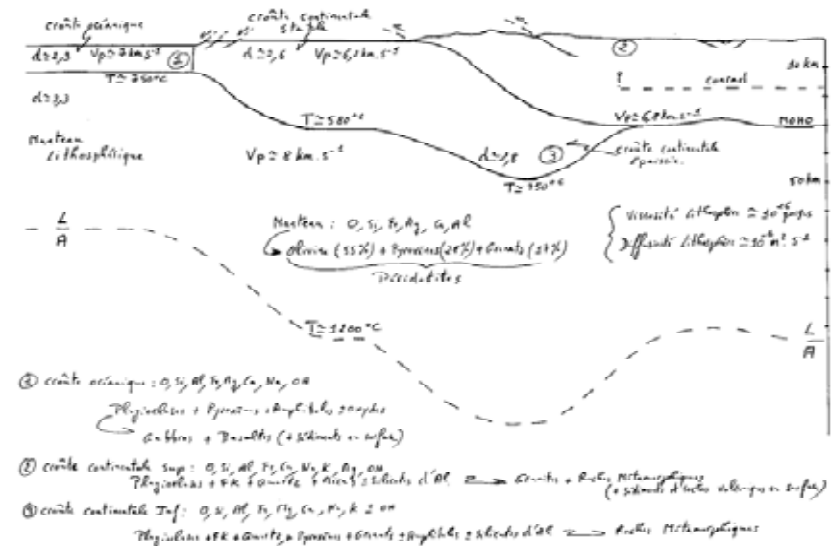 croûte océanique
croûte continentale
stable
d≃2,9 Vp≃7km.s⁻¹ ①
d≃2,6 Vp≃6,2km.s⁻¹
②
30km
T≃250°C
? Conrad
d≃3,3
T≃580°C
Vp≃6,8km.s⁻¹
MOHO
Manteau
Lithosphérique
Vp≃8km.s⁻¹
d≃2,8 ③
croûte continentale
T≃750°C
50km
Manteau : O, Si, Fe, Mg, Ca, Al
Olivine (55%) + Pyroxènes (28%) + Grenats (17%)
Péridotites
Viscosité lithosphère
Diffusivité lithosphère
L
A
T≃1200°C
L
A
① croûte océanique : O, Si, Al, Fe, Mg, Ca, Na, OH
Plagioclases + Pyroxènes + Amphiboles
Gabbros + Basaltes (+ sédiments en surface)
② croûte continentale Sup : O, Si, Al, Fe, Ca, Na, K, Mg, OH
Plagioclases + FK + Quartz + Micas ± Silicates d'Al Granites + Roches Métamorphiques
③ croûte continentale Inf : O, Si, Al, Fe, Mg, Ca, Na, K ± OH
Plagioclases + FK + Quartz + Pyroxènes + Grenats ± Amphiboles ± Silicates d'Al Roches Métamorphiques